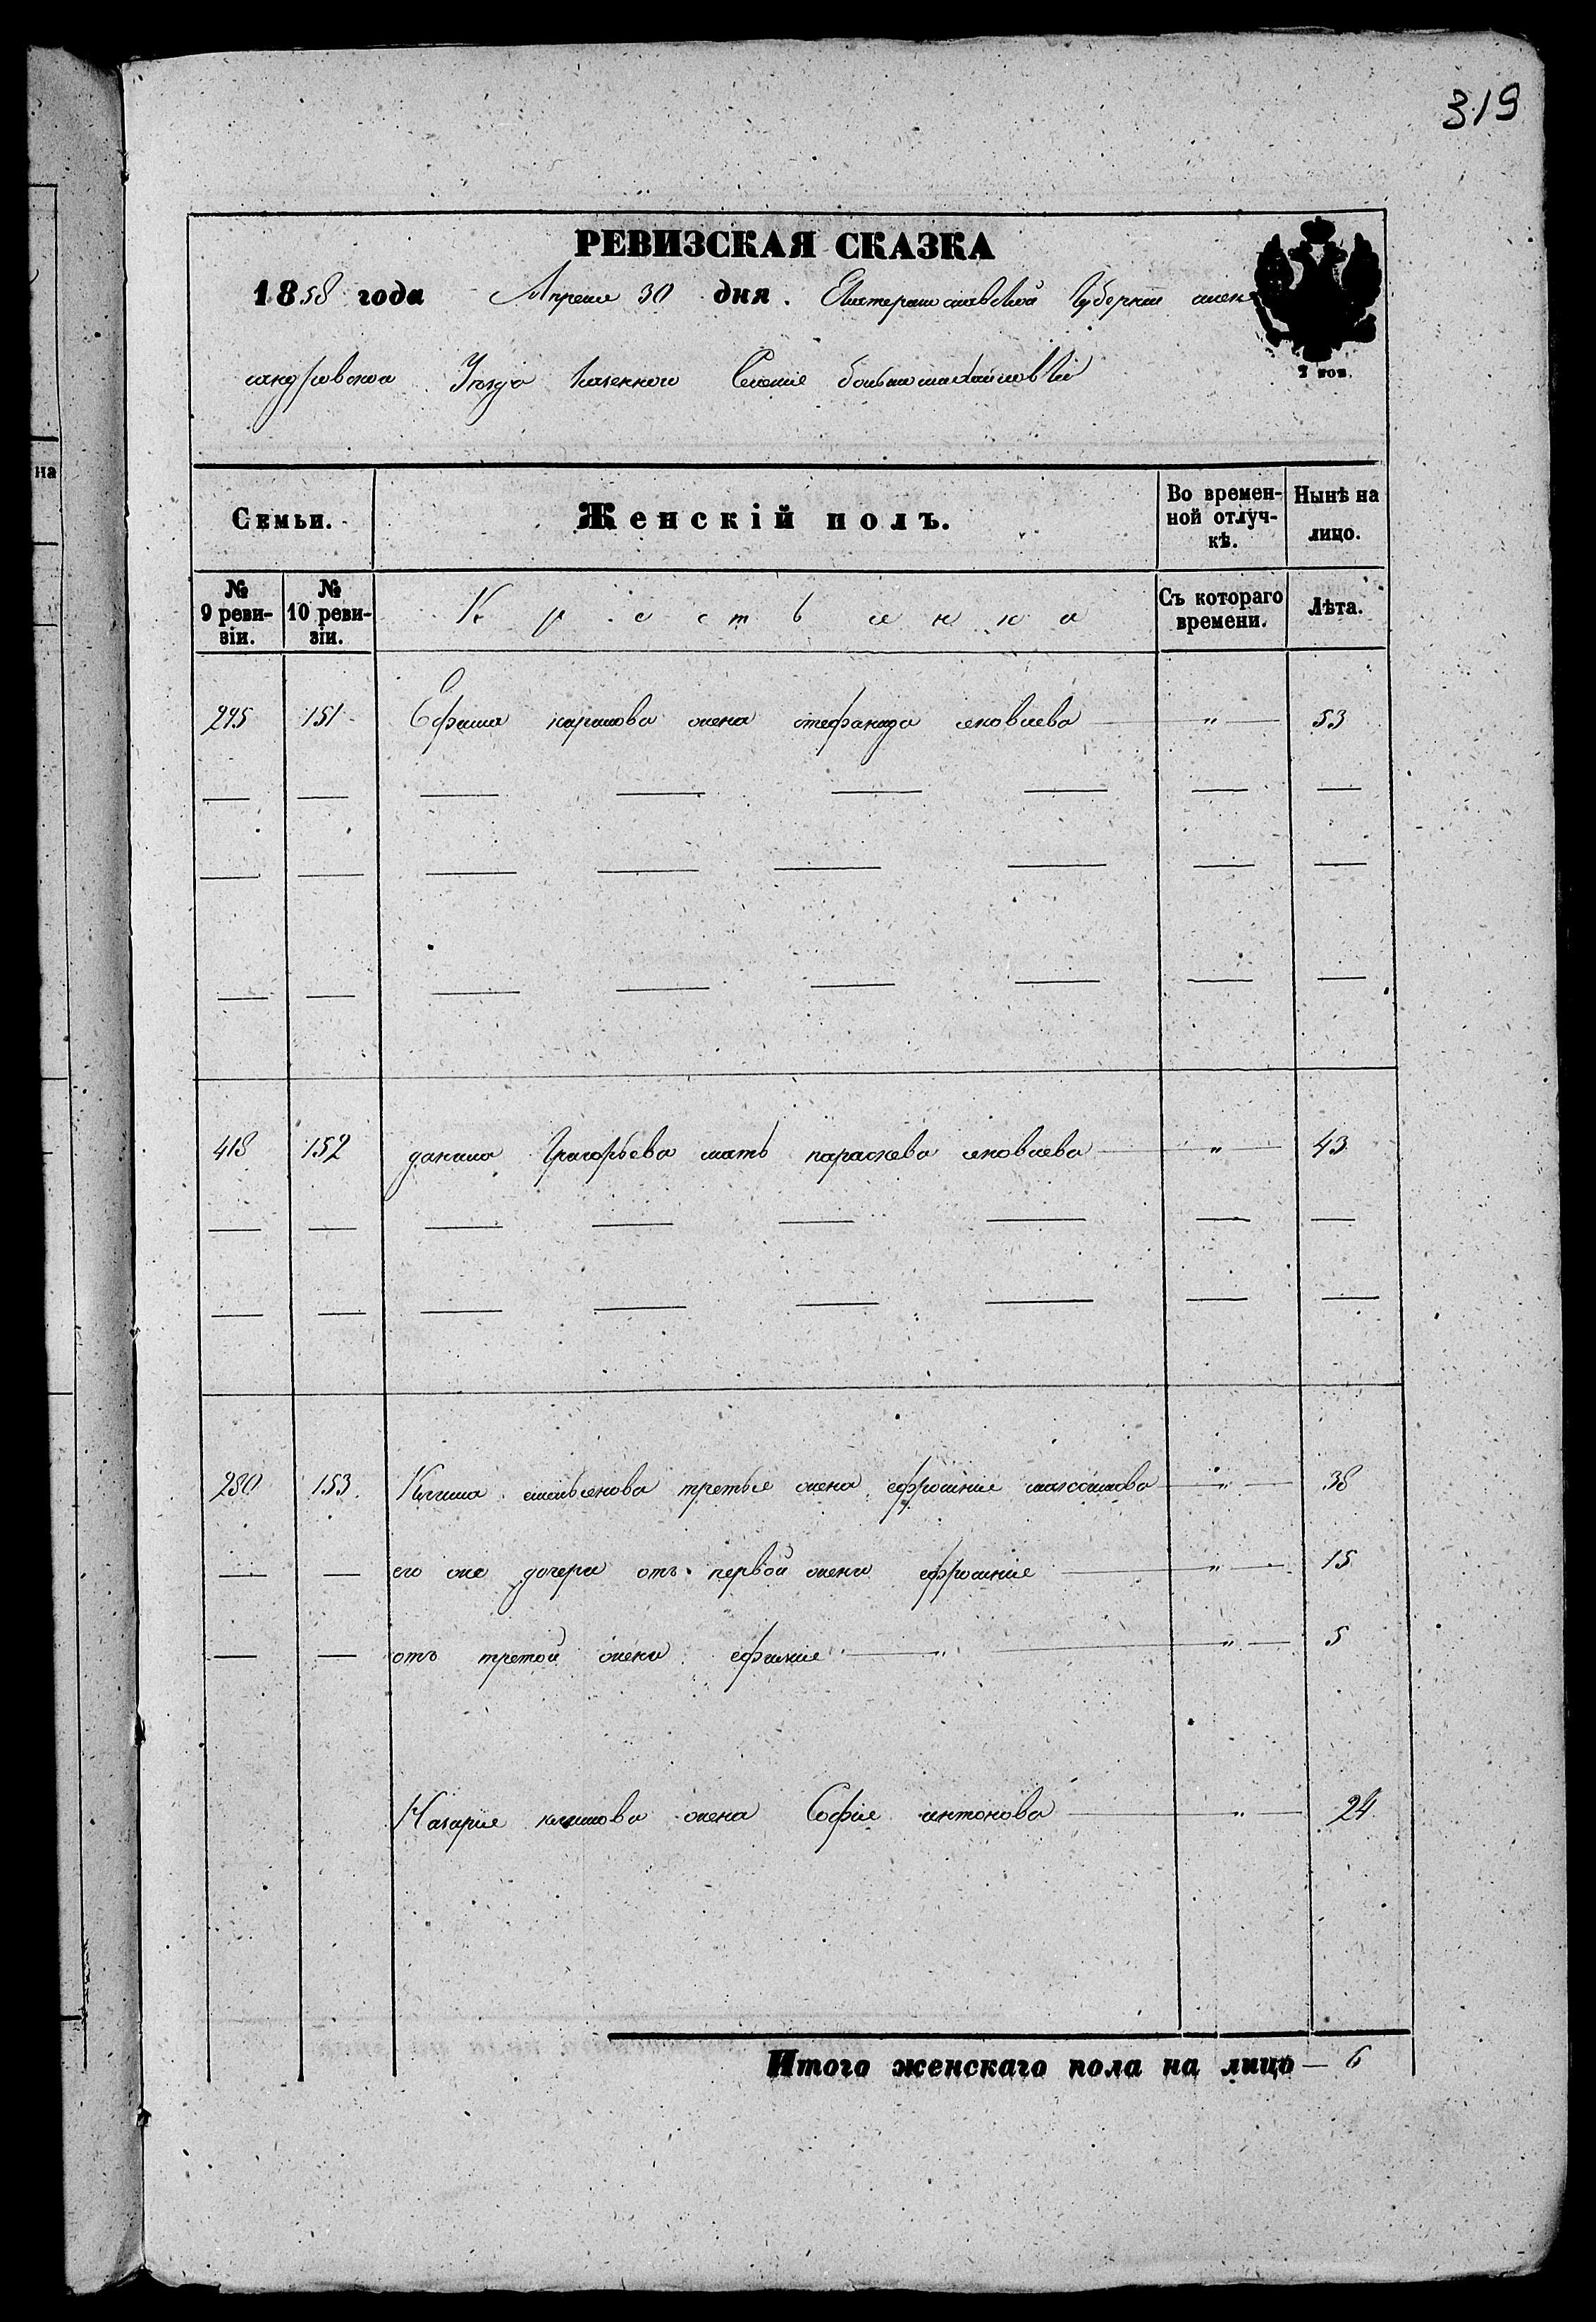 319
РЕВИЗСКАЯ СКАЗКА
1858 года Апреля 30 дня. Екатеринославской Губернии алек
сандровского Уѣзда казенного Селения большемихайловки
2 коп.
на
Семьи. Женскій полъ. Во времен-ной отлуч-кѣ. Нынѣ на лицо.
№ 9 реви-зіи. № 10 реви-зіи. Крестьяне Съ котораго времени. Лѣта.
295 151 Ефима жена стефанида яковлева — " — 53
418 152 данила Григорьева мать параскева яковлева — " — 43
280 153 Клима емельянова третья жена ефросиния максимова — " — 38
— — его же дочери отъ первой жены ефросиния — " — 15
— — отъ третой жены ефимия — " — " — 5
Назария климова жена София антонова — " — 24
Итого женскаго пола на лицо — 6